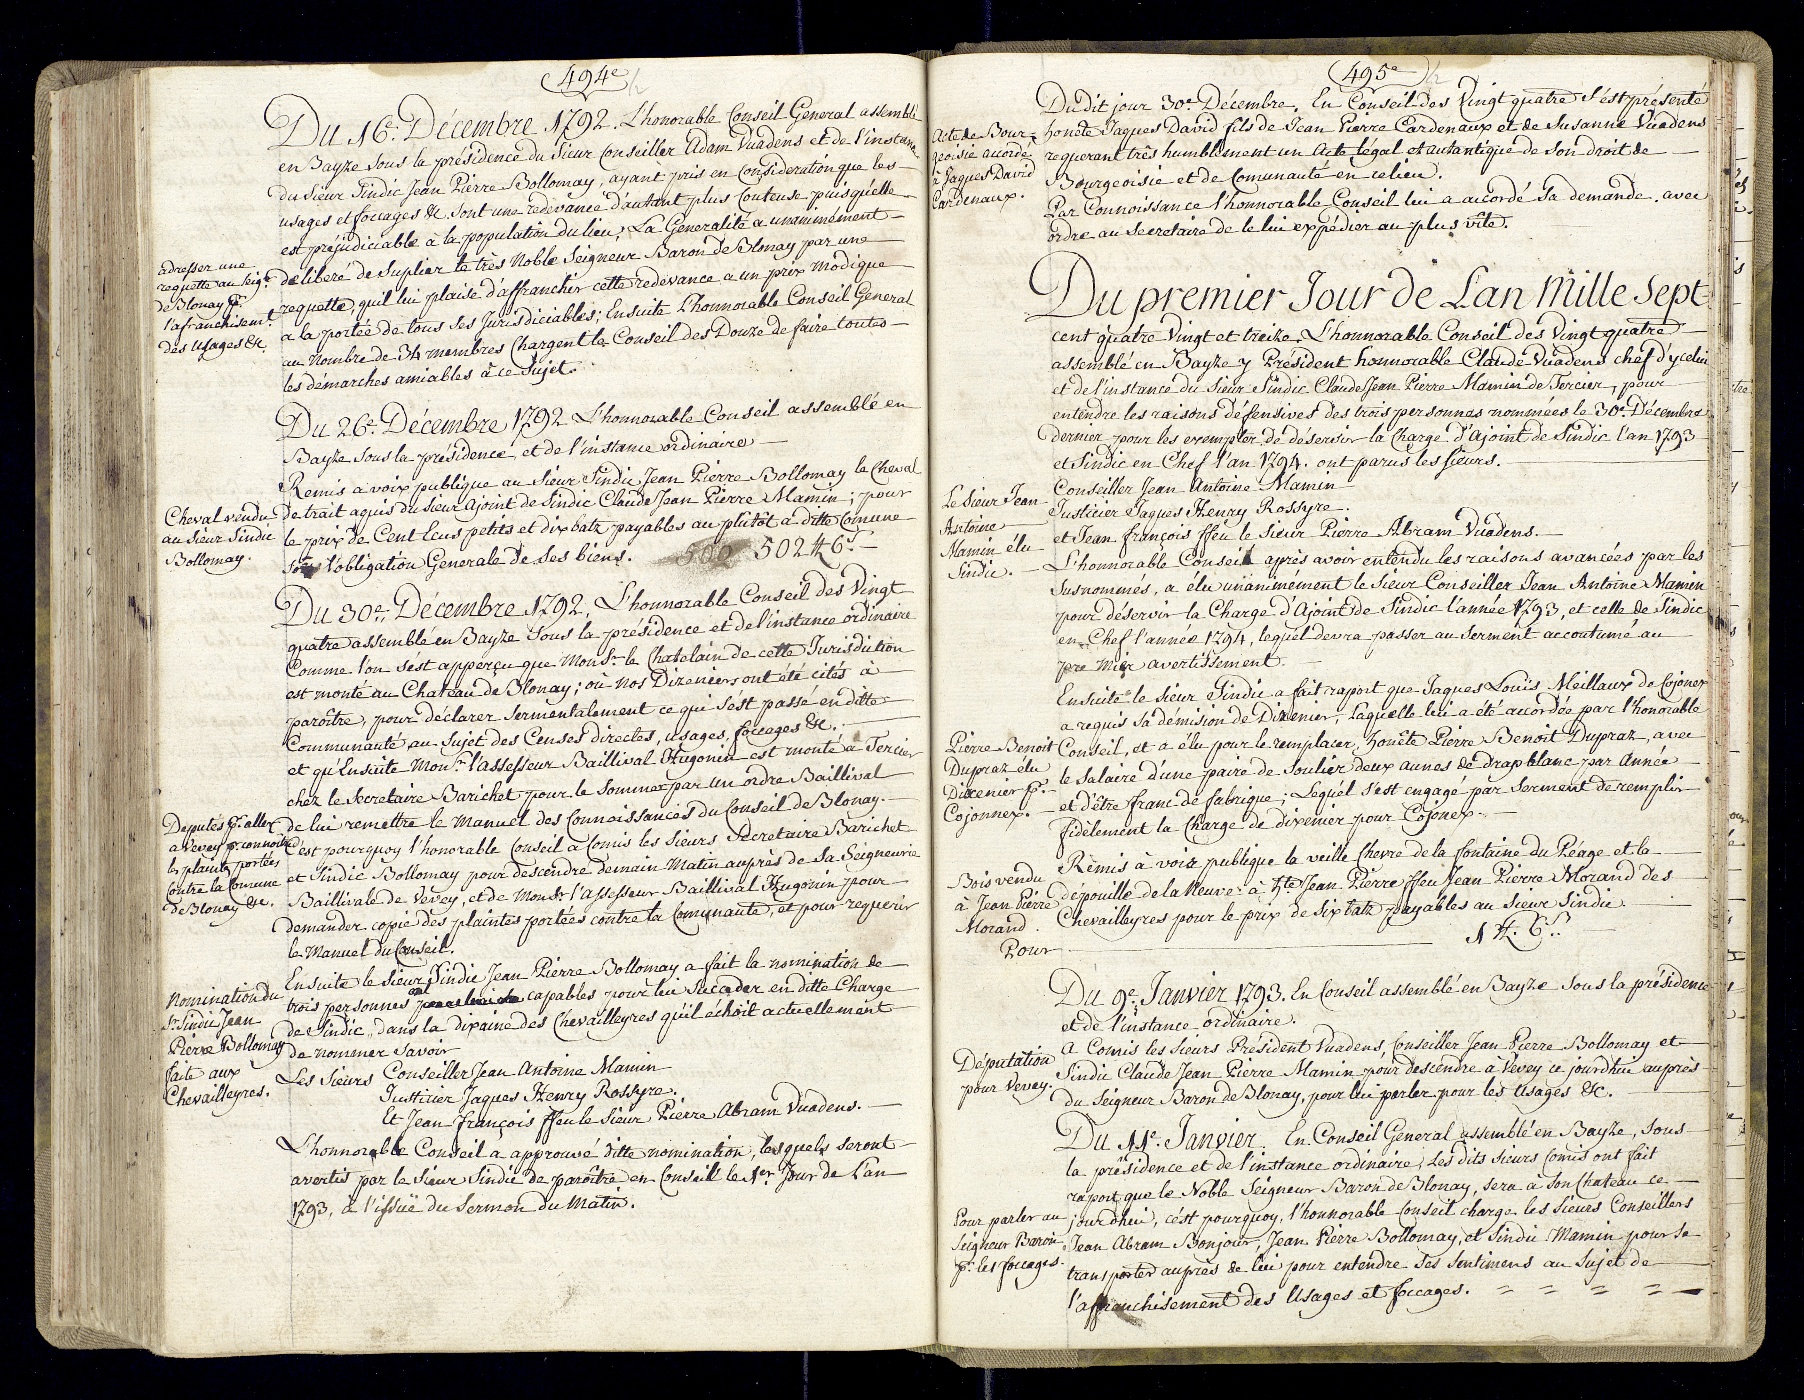 494e
Du 16e. Décembre 1792. L'honorable Conseil General assemblé
en Bayze sous la présidence du Sieur Conseiller Adam Vuadens et de l'instance
du Sieur Sindic Jean Pierre Bollomay, ayant pris en consideration que les
usages et foccages &c. sont une redevance d'autant plus couteuse puisqu'elle
est préjudiciable à la population du lieu, La Generalité a unanimément
adresser une
requette au Seigr.
de Blonay pr.
l'afranchisemt.
des Usages &c.
délibéré de suplier le très Noble Seigneur Baron de Blonay par une
requette, qu'il lui plaise d'affranchir cette redevance a un prix modique
a la portée de tous ses Jurisdiciables; Ensuite L'honnorable Conseil General
au nombre de 34 membres Chargent le Conseil des Douze de faire toutes
les démarches amiables à ce Sujet.
Du 26e. Décembre 1792 L'honnorable Conseil assemblé en
Bayze sous la présidence et de l'instance ordinaire
Remis à voix publique au Sieur Sindic Jean Pierre Bollomay le Cheval
Cheval vendu
au Sieur Sindic
Bollomay.
de trait aquis du Sieur Ajoint de Sindic Claude Jean Pierre Mamin; pour
le prix de Cent Ecus petits et dix batz payables au plutôt a ditte Comune
sous l'obligation Generale de ses biens.
Du 30e. Décembre 1792. L'honnorable Conseil des Vingt
quatre assemblé en Bayze sous la présidence et de l'instance ordinaire
Comme l'on s'est apperçu que Monsr. le Chatelain de cette Jurisdiction
est monté au Chateau de Blonay; où nos Dizeniers ont été cités à
paroître, pour déclarer sermentalement ce qui s'est passé en ditte
Communauté au sujet des Censes directes, usages, foccages &c.
et qu'Ensuite Monsr. l'Assesseur Baillival Hugonin est monté a Tercier
chez le Secretaire Barichet pour le sommer par un ordre Baillival
Députés pr. aller
a Vevey pr. connoitre
les plaintes portées
Contre la Comune
de Blonay &c.
de lui remettre le Manuel des Connoissances du Conseil de Blonay.
C'est pourquoy l'honorable Conseil a Comis les Sieurs Secretaire Barichet
et Sindic Bollomay pour descendre demain Matin auprès de Sa Seigneurie
Baillivale de Vevey, et de Monsr. l'Assesseur Baillival Hugonin pour
demander copie des plaintes portées contre la Comunauté, et pour requerir
le Manuel du Conseil.
Nomination du
Sr. Sindic Jean
Pierre Bollomay
faite aux
Chevailleyres.
Ensuite le Sieur Sindic Jean Pierre Bollomay a fait la nomination de
trois personnes capables pour lui Succeder en ditte Charge
de Sindic, dans la dixaine des Chevailleyres qu'il échoit actuellement
de nommer Savoir
Les Sieurs Conseiller Jean Antoine Mamin
Justicier Jaques Henry Rossyre.
Et Jean François ffeu le Sieur Pierre Abram Vuadens.
L'honnorable Conseil a approuvé ditte nomination, lesquels seront
avertis par le Sieur Sindic de paroître en Conseil le 1er. Jour de L'an
1793, à l'issüe du Sermon du Matin.
495e
Dudit jour 30e. Décembre. En Conseil des Vingt quatre s'est présenté
Acte de Bour=
geoisie accordé
à Jaques David
Cardenaux.
honête Jaques David fils de Jean Pierre Cardenaux et de Susanne Vuadens
requerant très humblement un Acte legal et autantique de son droit de
Bourgeoisie et de Comunauté en ce lieu.
Par Connoissance l'honnorable Conseil lui a accordé sa demande, avec
ordre au Secretaire de le lui expédier au plus vîte.
Du premier Jour de L'an Mille Sept
cent quatre Vingt et treize. L'honnorable Conseil des Vingt quatre
assemblé en Bayze y Président honnorable Claude Vuadens chef d'ycelui
et de l'instance du Sieur Sindic Claude Jean Pierre Mamin de Tercier, pour
entendre les raisons défensives des trois personnes nommées le 30e. Décembre
dernier pour les exempter de déservir la Charge d'Ajoint de Sindic l'an 1793
et Sindic en Chef l'an 1794. ont parus les Sieurs.
Le Sieur Jean
Antoine
Mamin élu
Sindic.
Conseiller Jean Antoine Mamin
Justicier Jaques Henry Rossyre.
et Jean François ffeu le Sieur Pierre Abram Vuadens.
L'honnorable Conseil après avoir entendu les raisons avancées par les
susnommés, a élu unanimément le Sieur Conseiller Jean Antoine Mamin
pour déservir la Charge d'Ajoint de Sindic l'année 1793, et celle de Sindic
en Chef l'année 1794, lequel devra passer au Serment accoutumé au
premier avertissement.
Ensuite le Sieur Sindic a fait raport que Jaques Louïs Meillaux de Cojonex
a requis sa démision de Dizenier, Laquelle lui a été accordée par l'honorable
Pierre Benoit
Dupraz élu
Dizenier pr.
Cojonnex.
Conseil, et a élu pour le remplacer, honête Pierre Benoit Dupraz, avec
le salaire d'une paire de Soulier deux aunes de drap blanc par Année
et d'être franc de fabrique; Lequel s'est engagé par Serment de remplir
fidèlement la Charge de dizenier pour Cojonex.
Bois vendu
à Jean Pierre
Morand.
Pour
Remis à voix publique la veille Chevre de la fontaine du Péage et la
dépouille de la Neuve à hte. Jean Pierre ffeu Jean Pierre Morand des
Chevailleyres pour le prix de Six batz payables au Sieur Sindic.
Du 9e. Janvier 1793. En Conseil assemblé en Bayze sous la présidence
et de l'instance ordinaire.
Députation
pour Vevey.
A Comis les Sieurs Président Vuadens, Conseiller Jean Pierre Bollomay et
Sindic Claude Jean Pierre Mamin pour descendre à Vevey ce jourdhui auprès
du Seigneur Baron de Blonay, pour lui parler pour les Usages &c.
Du 11e. Janvier. En Conseil General assemblé en Bayze, sous
la présidence et de l'instance ordinaire; Les dits Sieurs Comis ont fait
raport que le Noble Seigneur Baron de Blonay, sera à son Chateau ce
Pour parler au
Seigneur Baron
pr. les foccages.
jourdhui, c'ést pourquoy, l'honnorable Conseil charge les Sieurs Conseillers
Jean Abram Bonjour, Jean Pierre Bollomay, et Sindic Mamin pour se
transporter auprès de lui pour entendre ses sentimens au Sujet de
l'affranchisement des Usages et foccages.